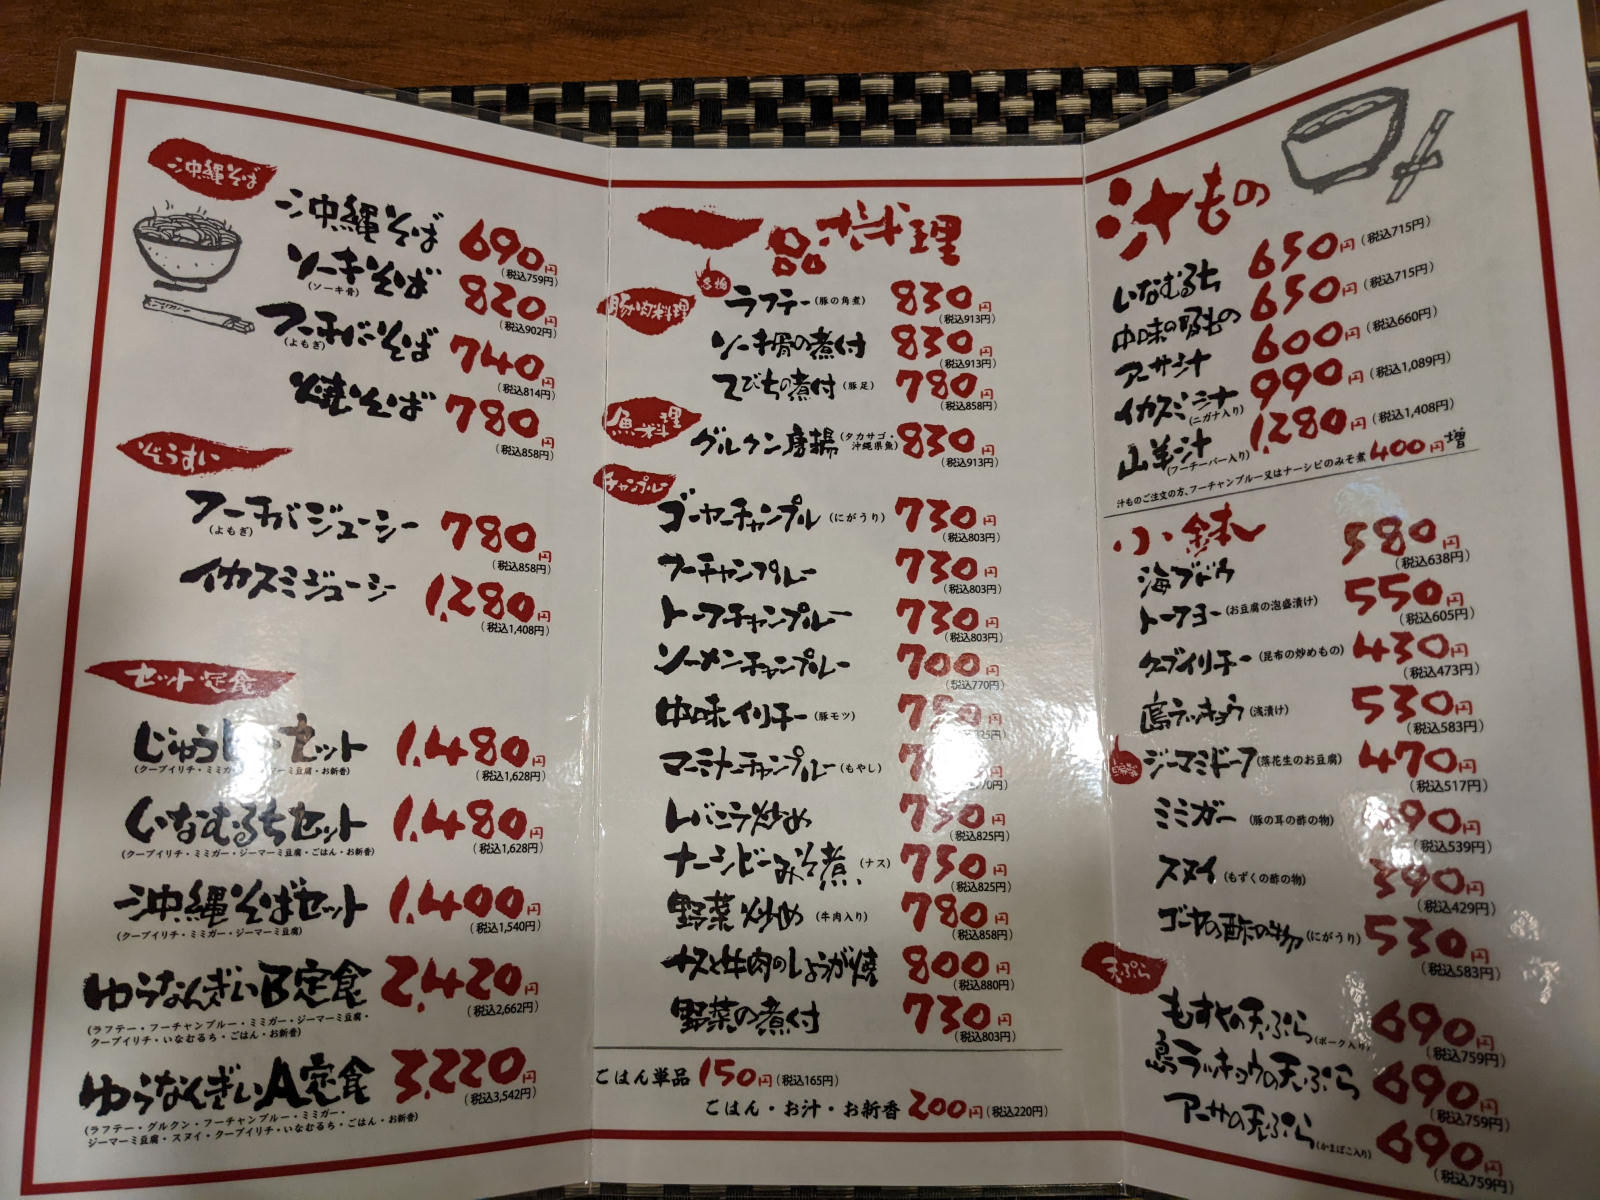 沖縄そば
沖縄そば 690円
(税込759円)
ソーキそば 820円
(ソーキ骨)
(税込902円)
フーチバーそば 740円
(よもぎ)
(税込814円)
焼そば 780円
(税込858円)
ぞうすい
フーチバジューシー 780円
(よもぎ)
(税込858円)
イカスミジューシー 1,280円
(税込1,408円)
セット・定食
じゅうしーセット 1,480円
(税込1,628円)
いなむるちセット 1,480円
(クーブイリチ・ミミガー・ジーマーミ豆腐・ごはん・お新香)
(税込1,628円)
沖縄そばセット 1,400円
(クーブイリチ・ミミガー・ジーマーミ豆腐)
(税込1,540円)
ゆうなんぎいB定食 2,420円
(ラフテー・フーチャンプルー・ミミガー・ジーマーミ豆腐・
クーブイリチ・いなむるち・ごはん・お新香)
(税込2,662円)
ゆうなんぎいA定食 3,220円
(税込3,542円)
(ラフテー・グルクン・フーチャンプルー・ミミガー・
ジーマーミ豆腐・スヌイ・クーブイリチ・いなむるち・ごはん・お新香)
一品料理
豚肉料理
ラフテー(豚の角煮) 830円
(税込913円)
ソーキ骨の煮付 830円
(税込913円)
てびちの煮付(豚足) 780円
(税込858円)
魚料理
グルクン唐揚(タカサゴ・沖縄県魚) 830円
(税込913円)
チャンプルー
ゴーヤーチャンプル(にがうり) 730円
(税込803円)
フーチャンプルー 730円
(税込803円)
トーフチャンプルー 730円
(税込803円)
ソーメンチャンプルー 700円
(税込770円)
中味イリチー(豚モツ)
マーミナーチャンプルー(もやし)
レバニラ炒め 750円
(税込825円)
ナーシビーみそ煮(ナス) 750円
(税込825円)
野菜炒め(牛肉入り) 780円
(税込858円)
ナスと牛肉のしょうが焼 800円
(税込880円)
野菜の煮付 730円
(税込803円)
ごはん単品 150円(税込165円)
ごはん・お汁・お新香 200円(税込220円)
汁もの
いなむるち 650円(税込715円)
中味の吸もの 650円(税込715円)
アーサ汁 600円(税込660円)
イカスミ汁 990円(税込1,089円)
(ニガナ入り)
山羊汁 1,280円(税込1,408円)
(フーチーバー入り)
汁ものご注文の方、フーチャンプルー又はナーシビのみそ煮 400円増
小鉢
海ブドウ 580円
(税込638円)
トーフヨー(お豆腐の泡盛漬け) 550円
(税込605円)
クーブイリチー(昆布の炒めもの) 430円
(税込473円)
島ラッキョウ(浅漬け) 530円
(税込583円)
ジーマミドーフ(落花生のお豆腐) 470円
(税込517円)
ミミガー(豚の耳の酢の物) 490円
(税込539円)
スヌイ(もずくの酢の物) 390円
(税込429円)
ゴーヤの酢の物(にがうり) 530円
(税込583円)
天ぷら
もずくの天ぷら(ポーク入り) 690円
(税込759円)
島ラッキョウの天ぷら 690円
(税込759円)
アーサの天ぷら(かまぼこ入り) 690円
(税込759円)